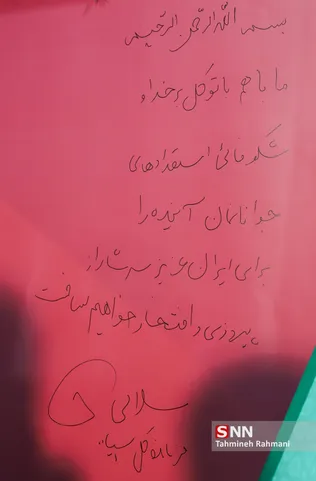 بسم الله الرحمن الرحیم
ما با هم با توکل بر خدا و
شکوفائی استعدادهای
جوانانمان آینده را
برای ایران عزیز سرشار از
پیروزی و افتخار خواهیم ساخت
سلامی
فرمانده کل سپاه
SNN
Tahmineh Rahmani